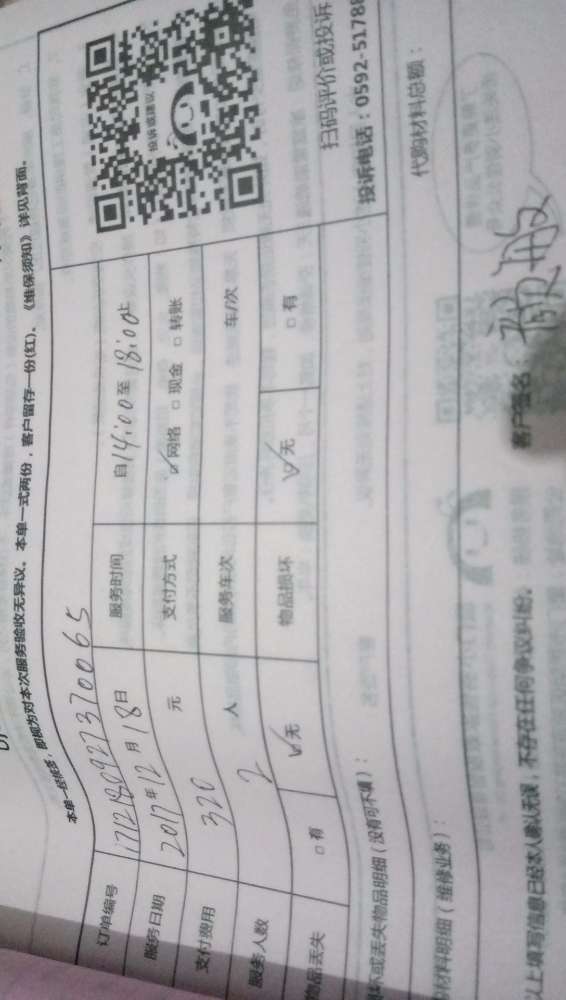 本单一经签名，即视为对本次服务验收无异议。本单一式两份，客户留存一份(红)。《维保须知》详见背面。
订单编号 1712180927370065
服务日期 2017年12月18日 服务时间 自14:00至18:00止
支付费用 320 元 支付方式 ☑网络 □现金 □转账
服务人数 2 人 服务车次 车/次
物品丢失 □有 ☑无 物品损坏 ☑无 □有
投诉或建议
扫码评价或投诉
投诉电话：0592-5178
坏或丢失物品明细（没有可不填）：
材料明细（维修业务）： 代购材料总额：
以上填写信息已经本人确认无误，不存在任何争议纠纷。 客户签名：